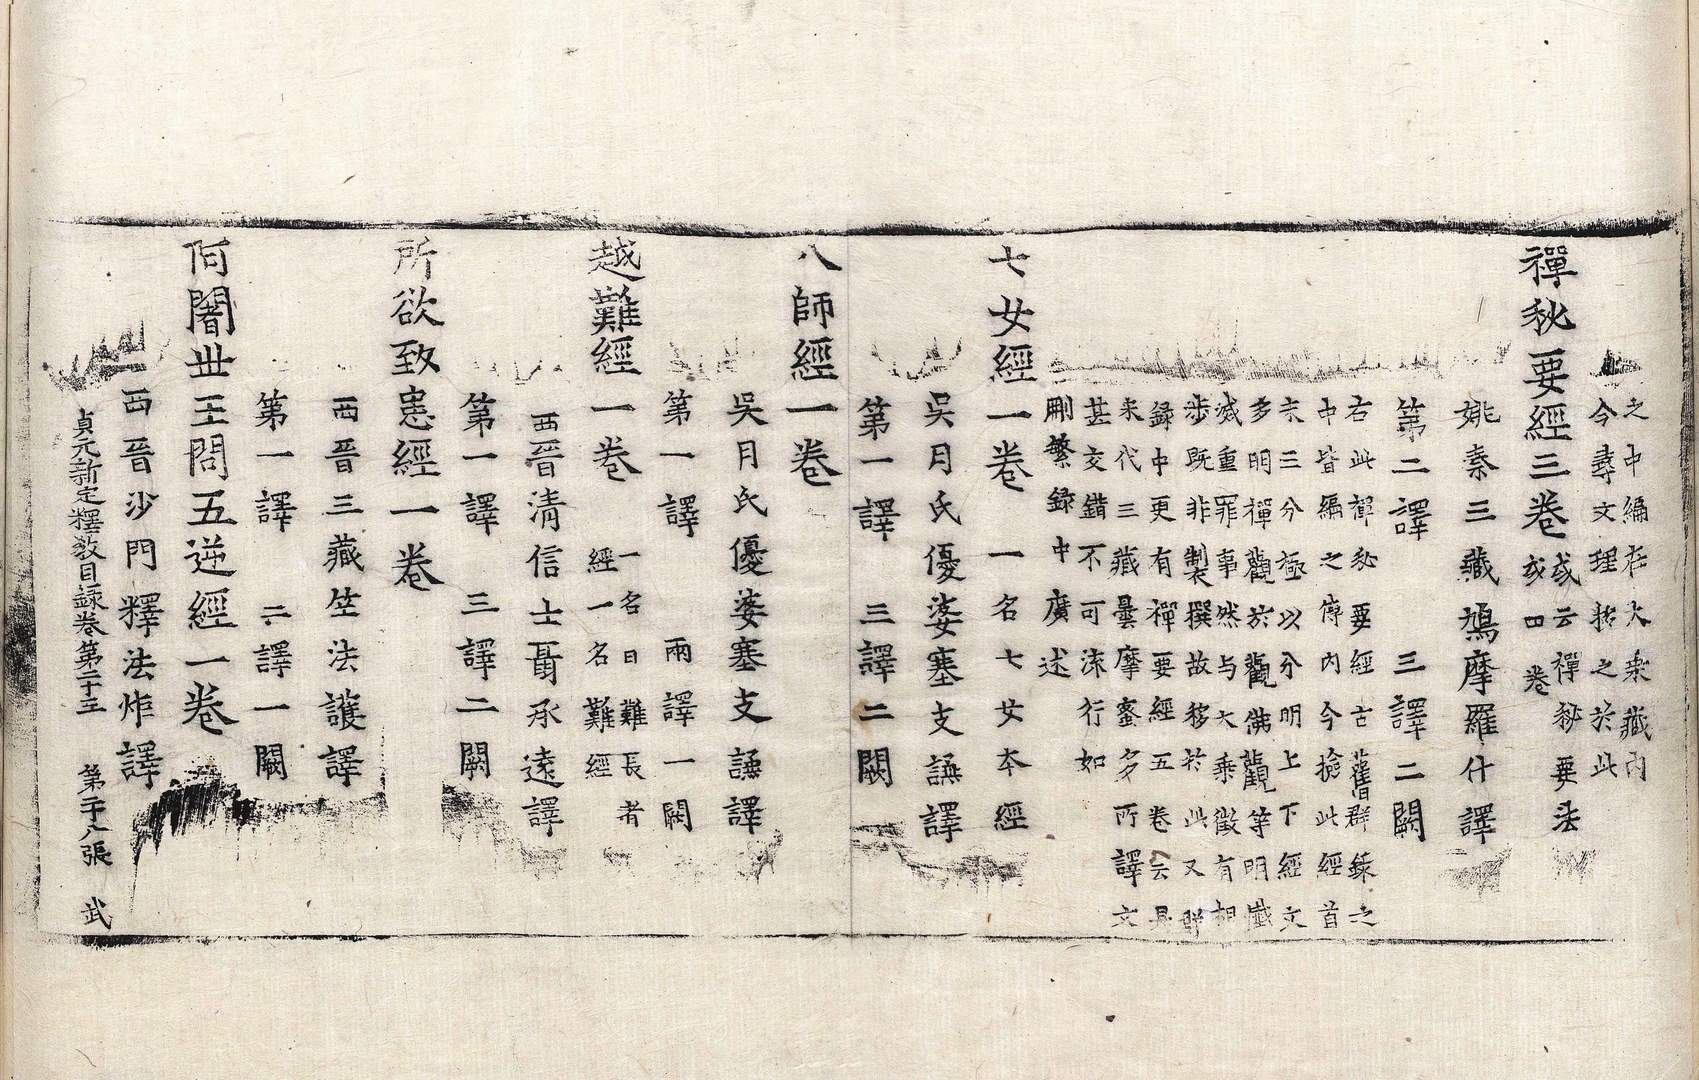 之中編在大乘藏内
今尋文理括之於此
禪秘要經三卷 或云禪秘要法
或四卷
姚秦三藏鳩摩羅什譯
第二譯 三譯二闕
右此禪秘要經古舊群録之
中皆編之傳内今撿此經首
末三分極以分明上下經文
多明禪觀於觀佛觀等明懺
滅重罪事然与大乘徵有相
涉既非製撰故移於此又群
録中更有禪要經五卷云是
宋代三藏曇摩蜜多所譯文
甚交錯不可流行如
刪繁録中廣述
七女經一卷 一名七女本經
吳月氏優婆塞支謙譯
第一譯 三譯二闕
八師經一卷
吳月氏優婆塞支謙譯
第一譯 兩譯一闕
越難經一卷 一名曰難長者
經一名難經
西晉清信士聶承遠譯
第一譯 三譯二闕
所欲致患經一卷
西晉三藏竺法護譯
第一譯 二譯一闕
阿闍世王問五逆經一卷
西晉沙門釋法炬譯
貞元新定釋教目録卷第二十三 第二十八張 武